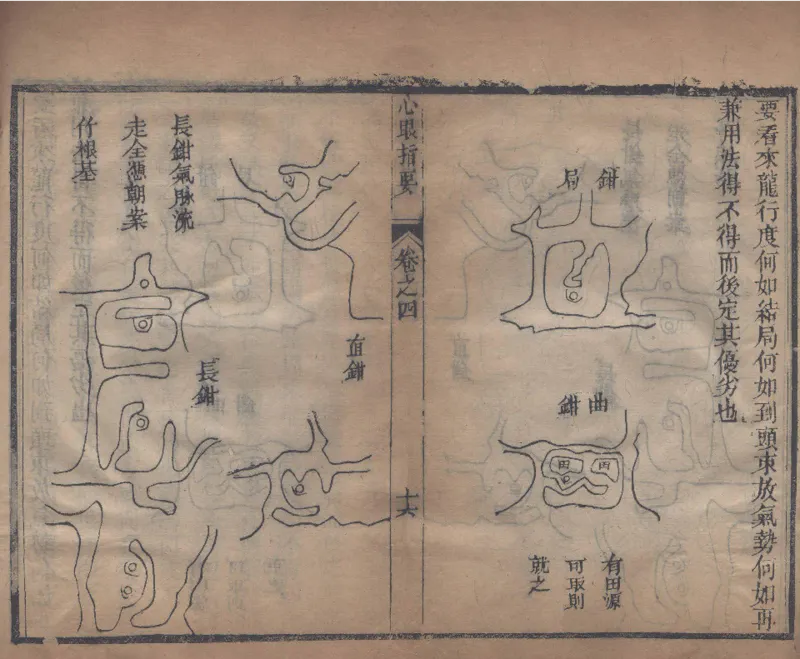 要看來龍行度何如結局何如到頭東放氣勢何如再
兼用法得不得而後定其優劣也
鉗局
曲鉗
丙
田
有田源
可取則
就之
心眼指要
卷之四
十六
直鉗
長鉗氣脉流
走全憑朝案
作根基
長鉗